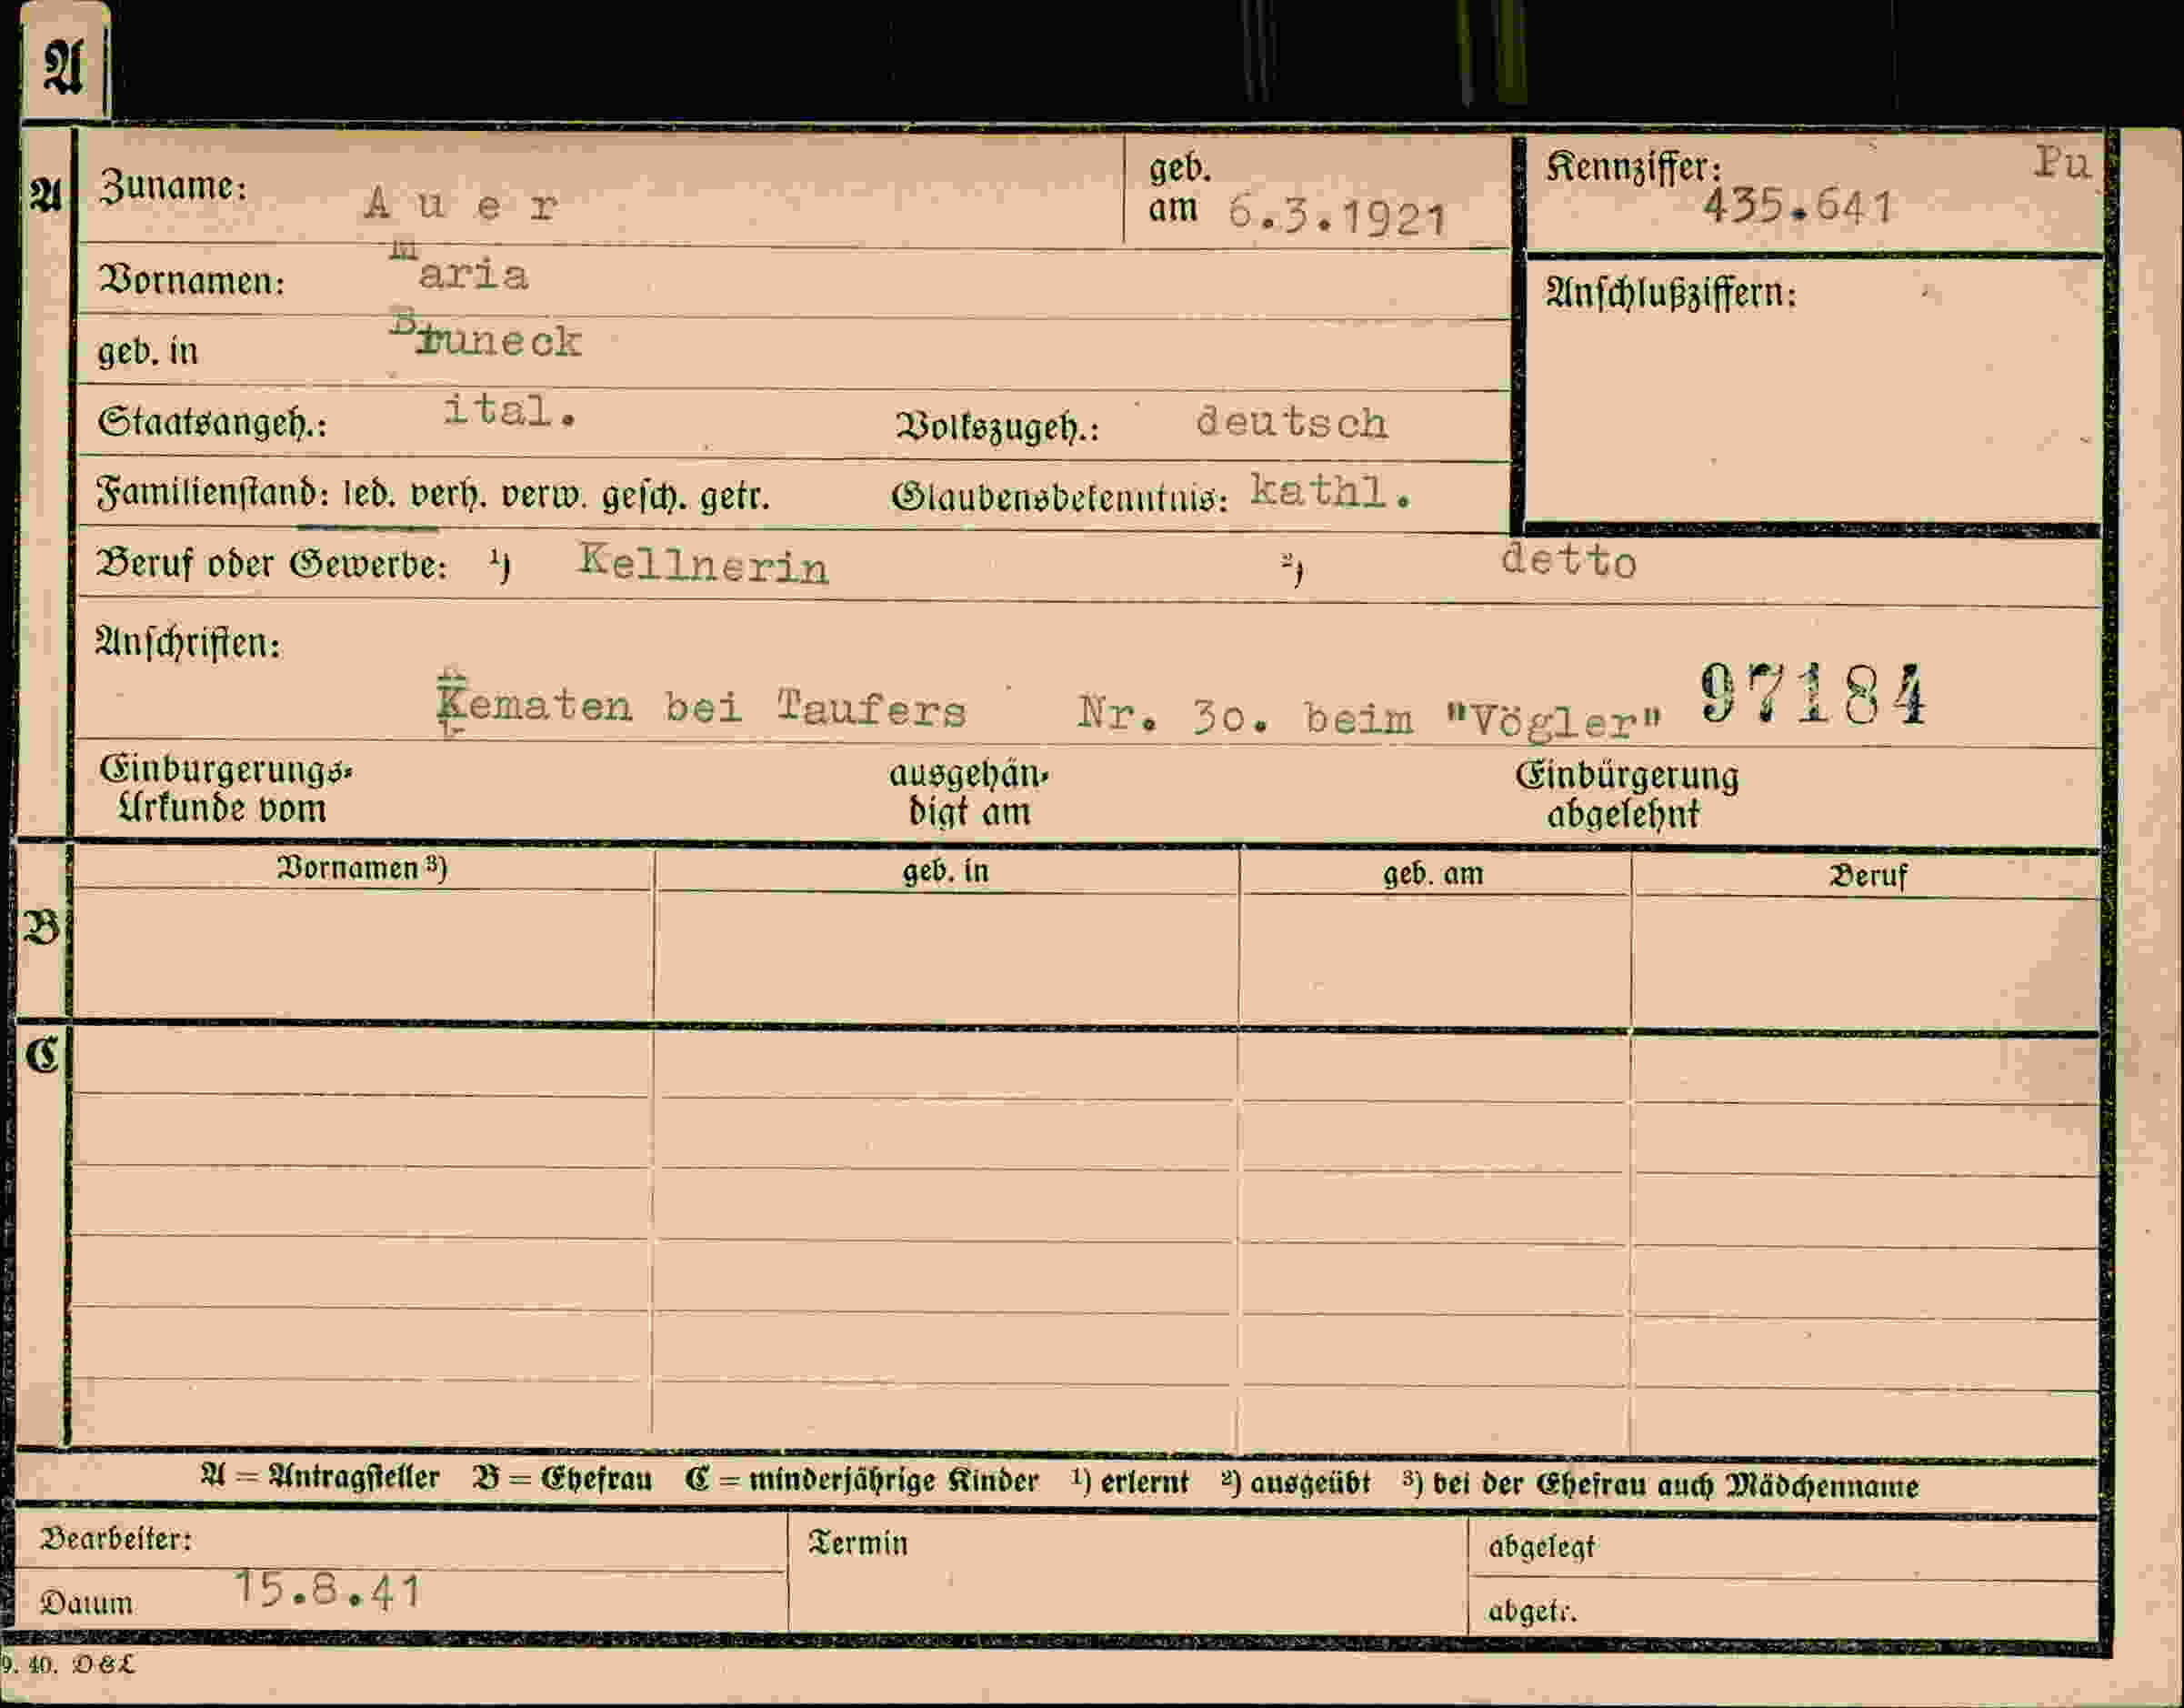 A
A
Zuname: Auer geb. am 6.3.1921 Kennziffer: 435.641 Pu
Vornamen: Maria Anschlußziffern:
geb. in Bruneck
Staatsangeh.: ital. Volkszugeh.: deutsch
Familienstand: led. verh. verw. gesch. getr. Glaubensbekenntnis: kathl.
Beruf oder Gewerbe: 1) Kellnerin 2) detto
Anschriften:
Kematen bei Taufers Nr. 30. beim "Vögler" 97184
Einbürgerungs-Urkunde vom ausgehändigt am Einbürgerung abgelehnt
Vornamen 3) geb. in geb. am Beruf
B
C
A = Antragsteller B = Ehefrau C = minderjährige Kinder 1) erlernt 2) ausgeübt 3) bei der Ehefrau auch Mädchenname
Bearbeiter: Termin abgelegt
Datum 15.8.41 abgetr.
9. 40. D & L